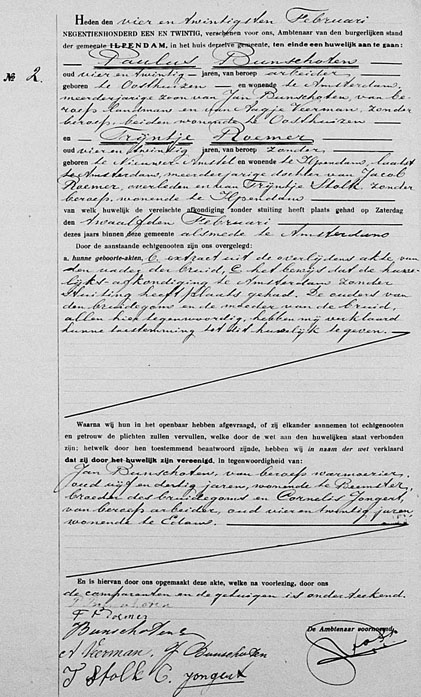 Heden den vier en twintigsten Februari
NEGENTIENHONDERD EEN EN TWINTIG, verschenen voor ons, Ambtenaar van den burgerlijken stand
der gemeente ILPENDAM, in het huis derzelve gemeente, ten einde een huwelijk aan te gaan:
Paulus Bunschoten
No 2.
oud vier en twintig jaren, van beroep arbeider,
geboren te Oosthuizen en wonende te Amsterdam,
meerderjarige zoon van Jan Bunschoten, van be-
roep en van Aagje Veerman, zonder
beroep, beiden wonende te Oosthuizen
en Trijntje Roemer
oud vier en twintig jaren, van beroep zonder,
geboren te Nieuwer Amstel en wonende te Ilpendam, laatst
te Amsterdam, meerderjarige dochter van Jacob
Roemer, overleden en van Trijntje Stolk zonder
beroep, wonende te Ilpendam
van welk huwelijk de vereischte afkondiging zonder stuiting heeft plaats gehad op Zaterdag
den twaalfden Februari
dezes jaars binnen deze gemeente alsmede te Amsterdam
Door de aanstaande echtgenooten zijn ons overgelegd:
a. hunne geboorte-akten, b. extract uit de overlijdens akte van
den vader der bruid, c. het bewijs dat de huwe-
lijks-afkondiging te Amsterdam zonder
stuiting heeft plaats gehad. De ouders van
den bruidegom en de moeder van de bruid,
allen hier tegenwoordig, hebben mij verklaard
hunne toestemming tot dit huwelijk te geven.
Waarna wij hun in het openbaar hebben afgevraagd, of zij elkander aannemen tot echtgenooten
en getrouw de plichten zullen vervullen, welke door de wet aan den huwelijken staat verbonden
zijn; hetwelk door hen toestemmend beantwoord zijnde, hebben wij in naam der wet verklaard
dat zij door het huwelijk zijn vereenigd, in tegenwoordigheid van:
Jan Bunschoten, van beroep warmoezier,
oud vijf en dertig jaren, wonende te Beemster,
broeder des bruidegoms en Cornelis Jongert,
van beroep arbeider, oud vier en twintig jaren
wonende te Edam.
En is hiervan door ons opgemaakt deze akte, welke na voorlezing, door ons
de comparanten en de getuigen is onderteekend.
Bunschoten
De Ambtenaar voornoemd,
A Veerman. J Bunschoten
T Stolk C. Jongert